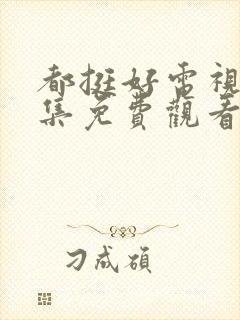 都挺好電視
集免費觀看
刁成碩